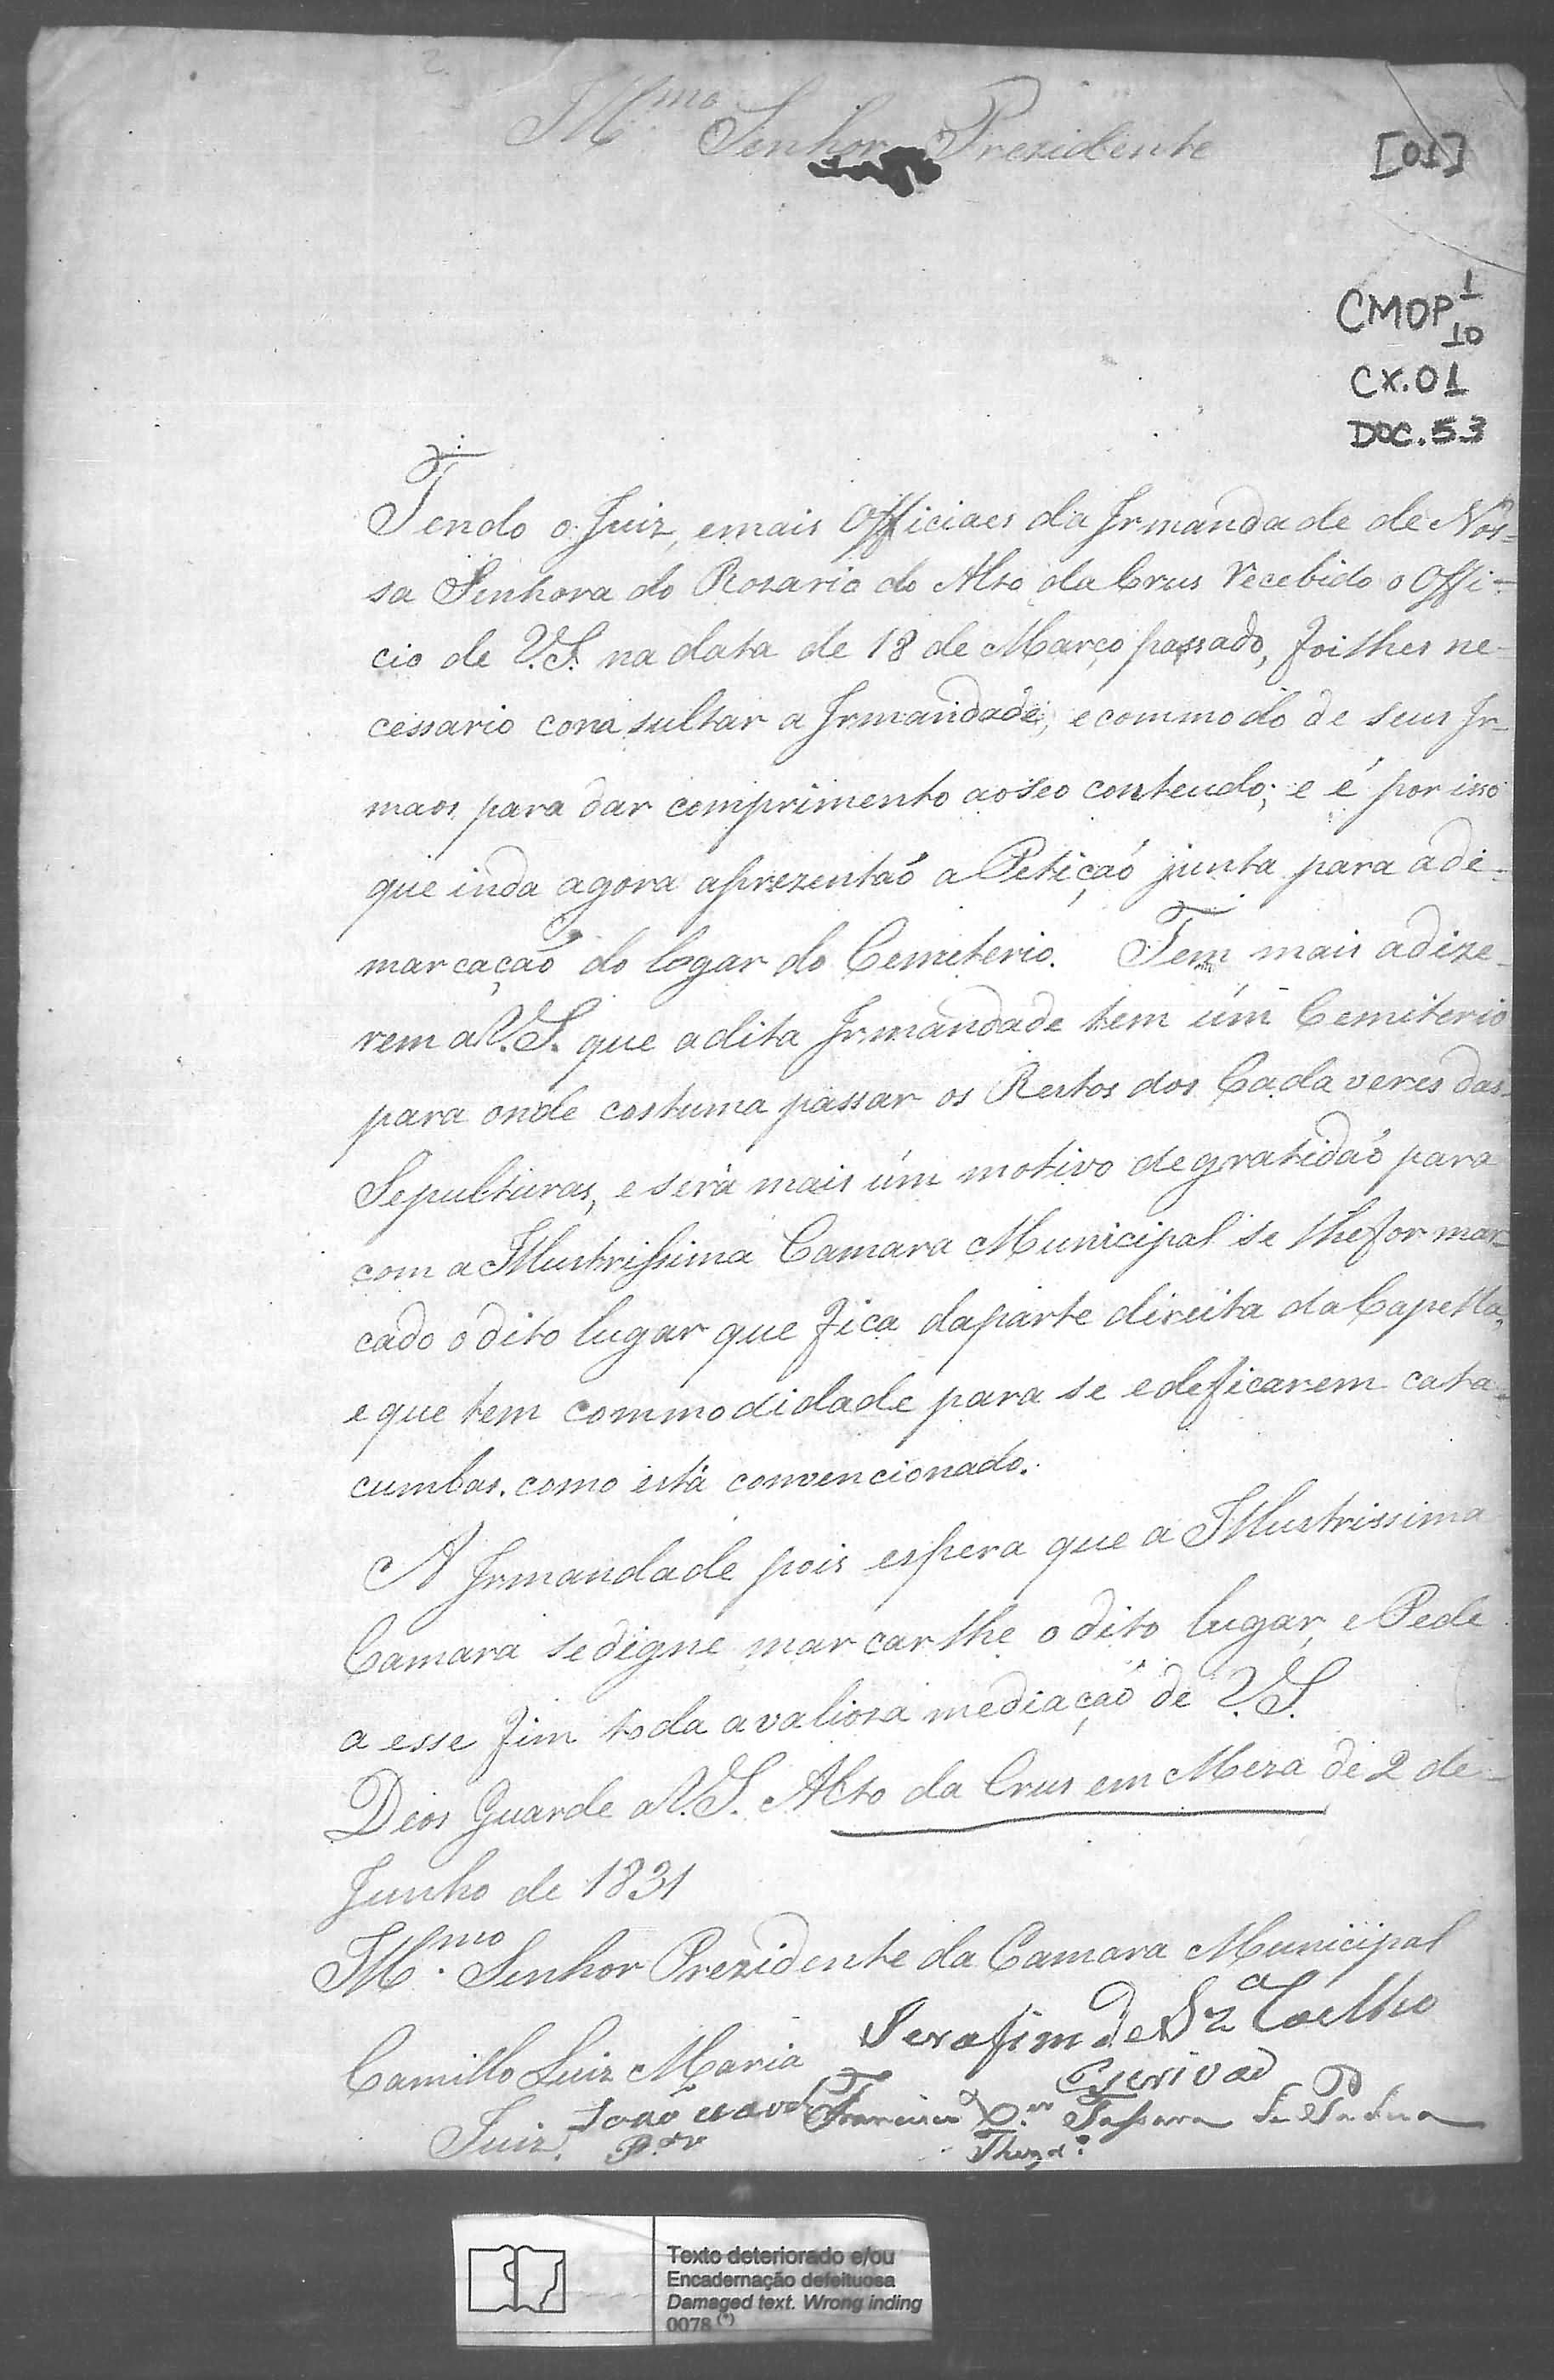 Illmo Senhor Prezidente
[01]
CMOP 1/10
CX.01
DOC.53
Tendo o Juiz, emais Officiaes da Irmandade de Nos=
sa Senhora do Rozario do Alto da Crus recebido o Offi=
cio de V.S. na data de 18 de Março passado, foilhes ne=
cessario comsultar a Irmandade, ecommodo de seus Ir=
maos para dar comprimento aoseo conteudo; e é por isso
que inda agora aprezentaõ a Petiçaõ junta para ade=
marcaçaõ do logar do Cemeterio. Tem mais adize=
rem aV.S. que adita Irmandade tem úm Cemiterio
para onde costuma passar os Restos dos Cadaveres das
Sepulturas, e será mais úm motivo degratidaõ para
com a Illustrissima Camara Municipal se lhefor mar=
cado odito lugar que fica daparte direita da Capella,
e que tem commodidade para se edeficarem cata=
cumbas. como está convencionado.
A Irmandade pois espera que a Illustrissima
Camara sedigne marcarlhe odito lugar, e Pede
a esse fim toda avaliosa mediaçaõ de V.S.
Deos Guarde aV.S. Alto da Crus em Meza de 2 de
Junho de 1831
Illmo. Senhor Prezidente da Camara Municipal
Serafim de Sza Coelho
Escrivaõ
Camillo Luiz Maria
Juiz.
João
P.dor
Francisco X.er de Padua
Thezro.
Texto deteriorado e/ou
Encadernação defeituosa
Damaged text. Wrong inding
0078 (*)